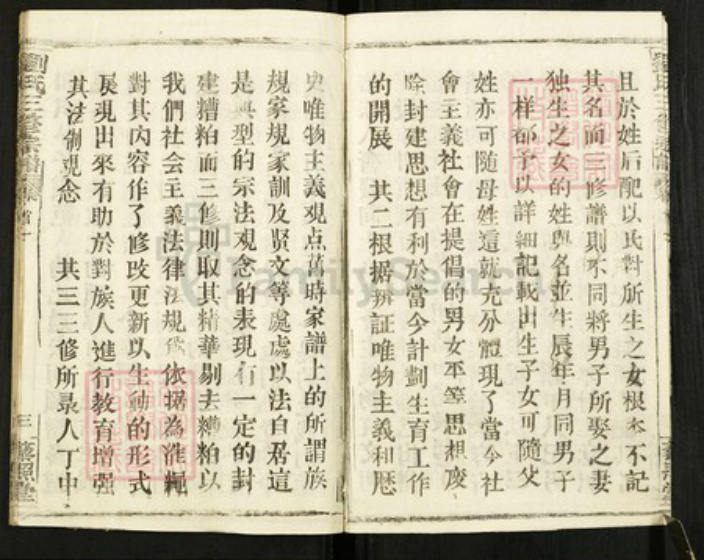 且於姓后配以氏對所生之女根本不記
其名而三修譜則不同將男子所娶之妻
独生之女的姓與名並生辰年月同男子
一样都予以詳細記載田生子女可隨父
姓亦可随母姓這就充分體現了當今社
會主義社會在提倡的男女平等思想廢
除封建思想有利於當今計劃生育工作
的開展 其二根据辨証唯物主義和歷
史唯物主義观点舊時家譜上的所謂族
規家規家訓及賢文等處處以法自居這
是典型的宗法观念的表現有一定的封
建糟粕而三修則取其精華剔去糟粕以
我們社会主義法律法規 依据為准繩
對其内容作了修改更新以生動的形式
展現出來有助於對族人進行教育增强
其法制观念 其三三修所录人丁中
劉氏三修宗譜
卷首一
三
藜照堂
FamilySearch